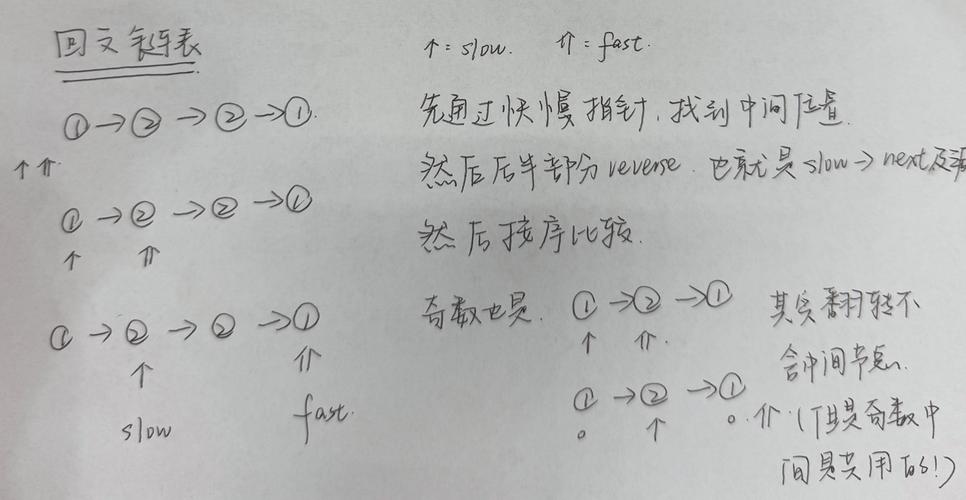 回文链表
↑: slow. ⇑: fast.
① → ② → ② → ①.
↑ ⇑.
① → ② → ② → ①
↑ ⇑
① → ② → ② → ①
↑ ⇑
slow fast.
先通过快慢指针,找到中间位置.
然后后半部分reverse. 也就是slow→next及
然后按序比较.
奇数也是.
① → ② → ①
↑ ⇑.
① → ② → ①
↑ ⇑.
其实翻转不
含中间节点.
(但是奇数中
间是共用的!)